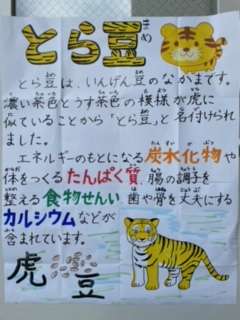 とら豆
まめ
とら豆は、いんげん豆のなかまです。
濃い茶色とうす茶色の模様が虎に
似ていることから「とら豆」と名付けられ
ました。
エネルギーのもとになる炭水化物や
体をつくるたんぱく質、腸の調子を
整える食物せんい、歯や骨を丈夫にする
カルシウムなどが
含まれています。
虎豆